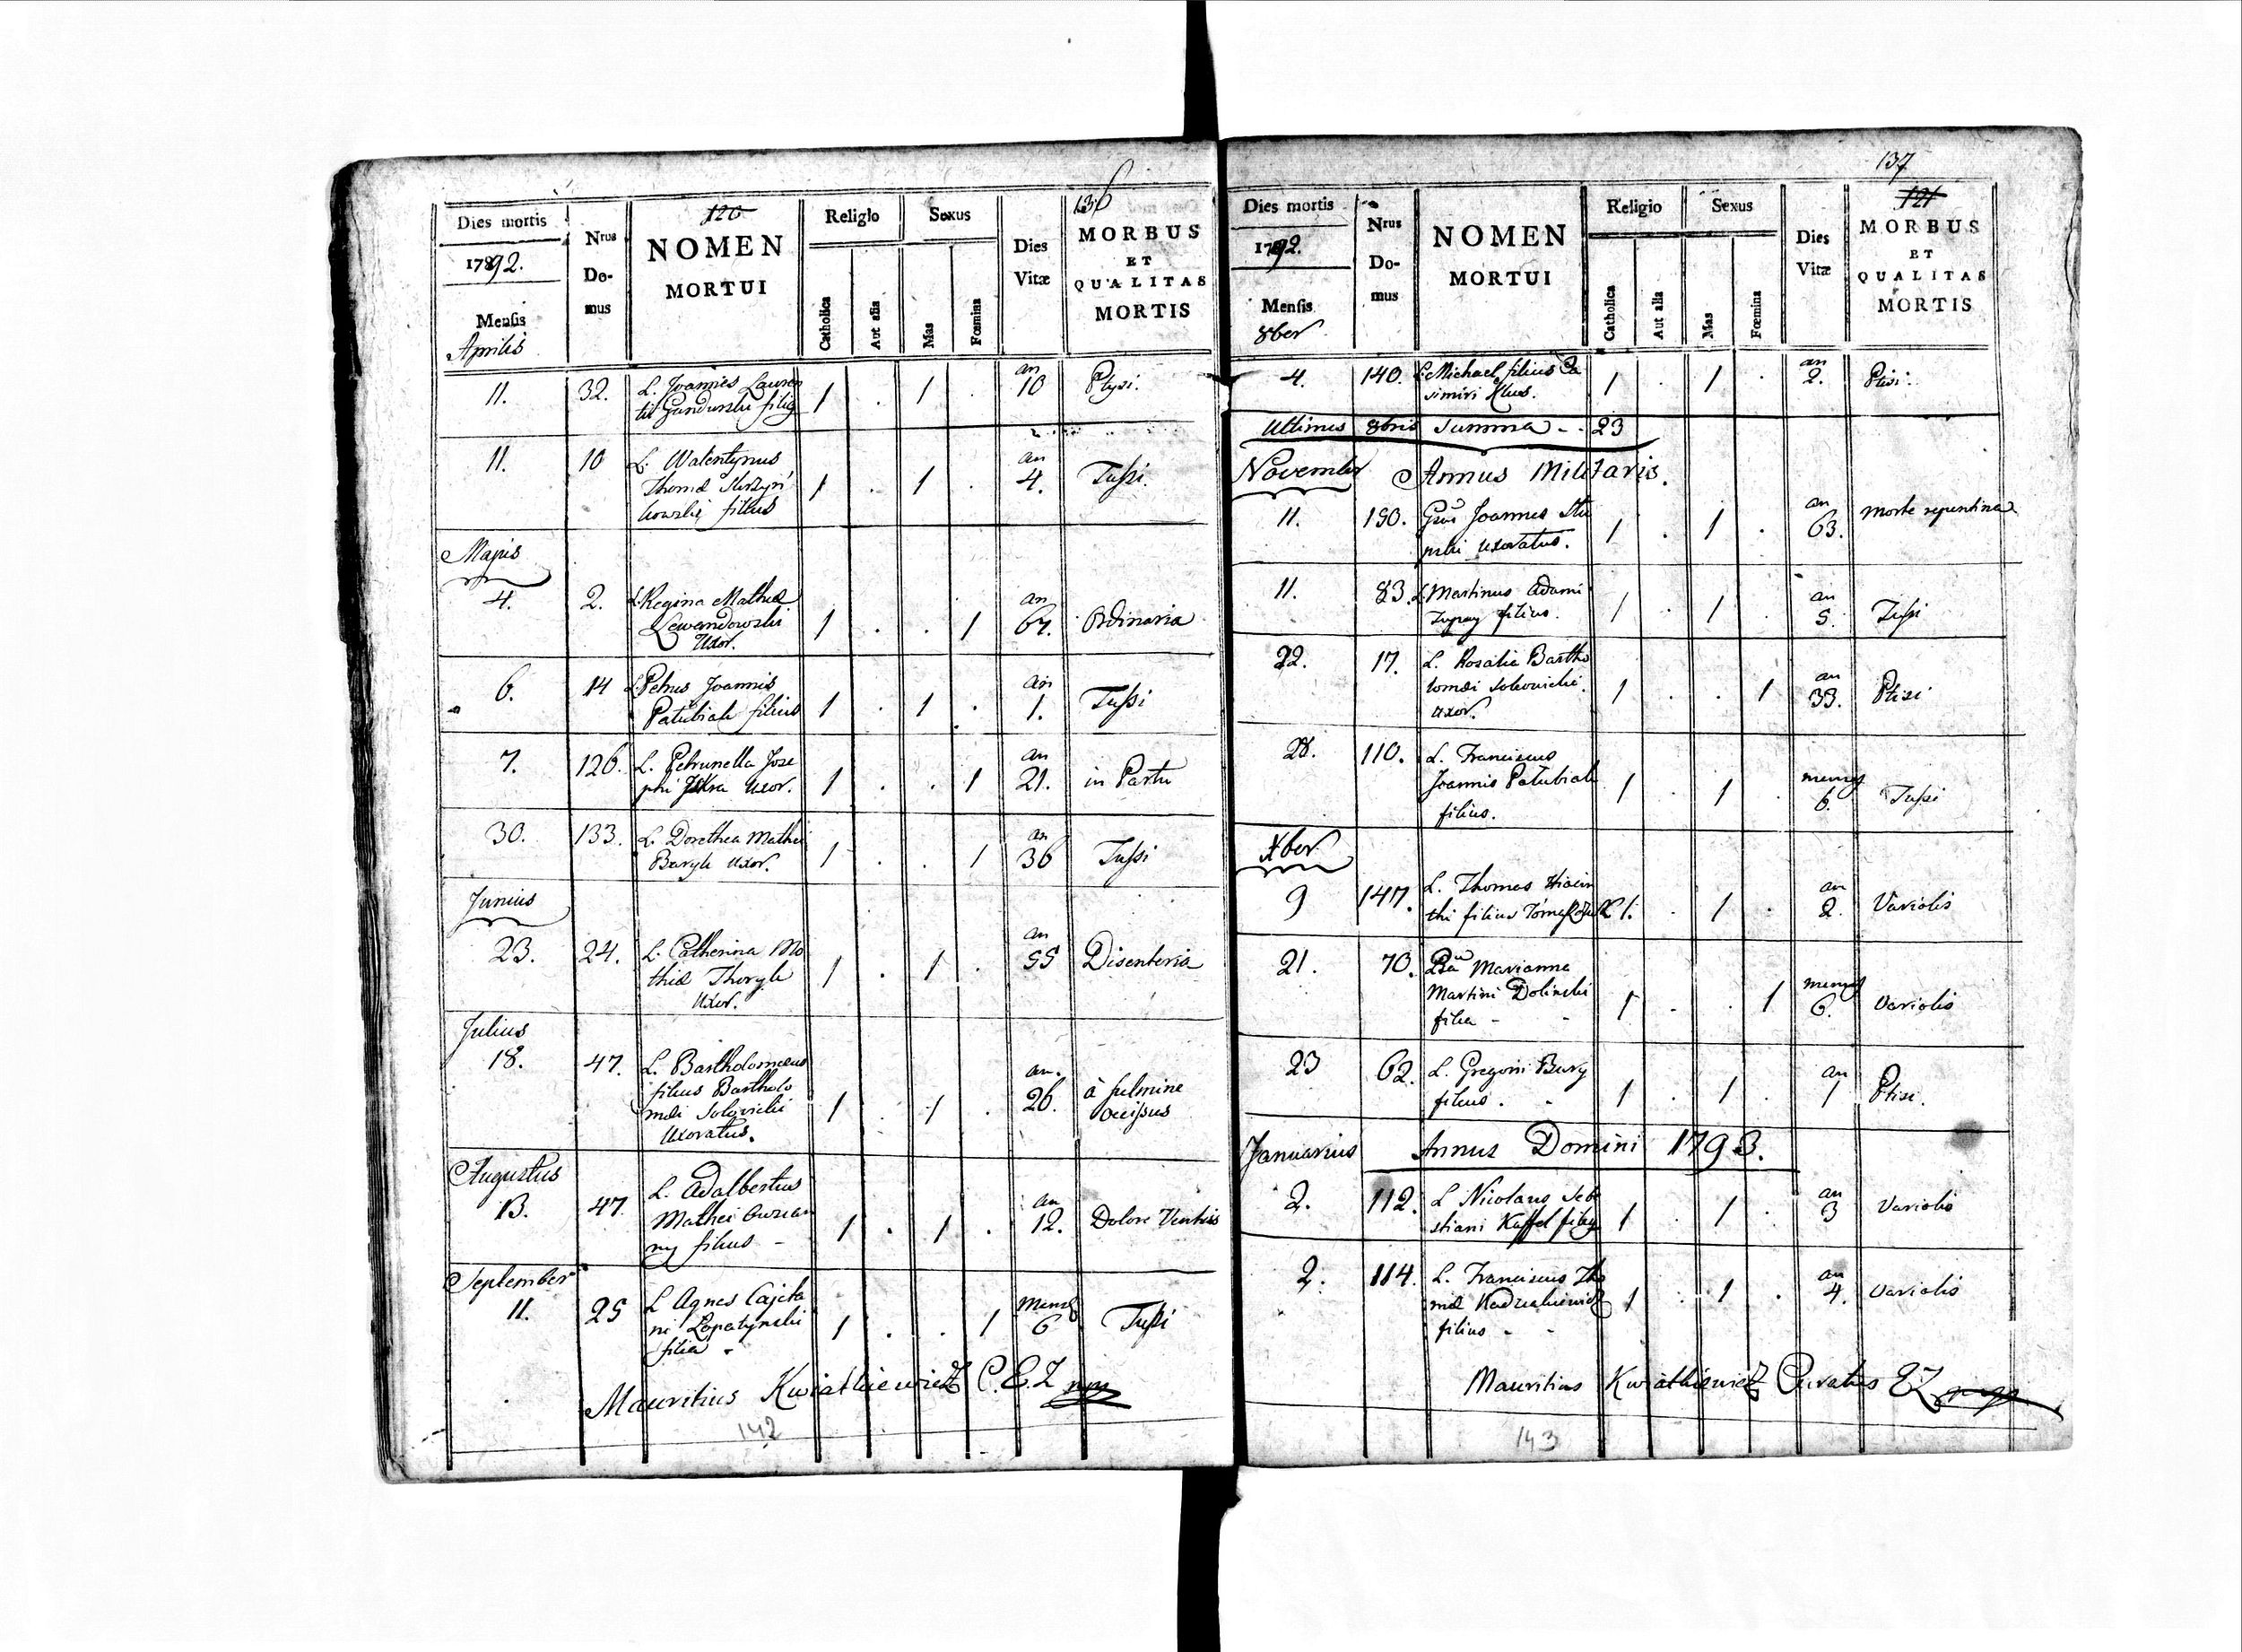 136
120
Dies mortis
1792.
Mensis
Aprilis
Nrus
Do-
mus
NOMEN
MORTUI
Religio
Catholica
Aut alia
Sexus
Mas
Fœmina
Dies
Vitæ
MORBUS
ET
QUALITAS
MORTIS
11. 32. L. Joannes Lauren 1 . 1 . an 10 Ptysi.
tii filig
11. 10 L. Walentynus 1 . 1 . an 4. Tussi.
Thomæ
kowski filius
Majus
4. 2. L. Regina Mathæ 1 . . 1 an 67. Ordinaria
Lewandowski
Uxor.
6. 14 L. Petrus Joannis 1 . 1 . an 1. Tussi
Patubiak filius
7. 126. L. Petrunella Jose 1 . . 1 an 21. in Partu
phi uxor.
30. 133. L. Dorothea Mathei 1 . . 1 an 36 Tussi
Baryla uxor.
Junius
23. 24. L. Catherina Ma 1 . 1 . an 55 Disenteria
thiæ
Uxor.
Julius
18. 47. L. Bartholomæus 1 . 1 . an. 26. à fulmine
filius Bartholo occissus
mæi
Uxoratus.
Augustus
13. 47. L. Adalbertus 1 . 1 . an 12. Dolore Ventris
Mathei
ny filius -
September
11. 25 L. Agnes Cajeta 1 . . 1 Mens 6 Tussi
ni Lopatynski
filia -
Mauritius Kwiatkiewicz C. E. Z mp
142
137
121
Dies mortis
1792.
Mensis
8ber
Nrus
Do-
mus
NOMEN
MORTUI
Religio
Catholica
Aut alia
Sexus
Mas
Fœmina
Dies
Vitæ
MORBUS
ET
QUALITAS
MORTIS
4. 140. L. Michael filius Ca 1 . 1 . an 2. Ptisi.
simiri Klus.
Ultimus 8bris Summa - - 23
November Annus Militaris.
11. 150. Joannes Stu 1 . 1 . an 63. morte repentina
pski uxoratus.
11. 83. L. Martinus Adami 1 . 1 . an 5. Tussi
filius.
22. 17. L. Rosalia Bartho 1 . . 1 an 33. Ptisi
lomæi
uxor.
28. 110. L. Franciscus 1 . 1 . 6. Tussi
Joannis Patubiak
filius.
Xber
9 147. L. Thomas Hiacin 1. . 1 . an 2. Variolis
thi filius
21. 70. Marianna 1 . . 1 6. Variolis
Martini Dolinski
filia - -
23 62. L. Gregorii Bury 1 . 1 . an 1 Ptisi.
filius. -
Januarius Annus Domini 1793.
2. 112. L Nicolaus Seba 1 . 1 . an 3 Variolis
stiani Kaffel
2. 114. L. Franciscus Tho 1 . 1 . an 4. Variolis
mæ
filius - -
Mauritius Kwiatkiewicz Curatus EZ mp
143